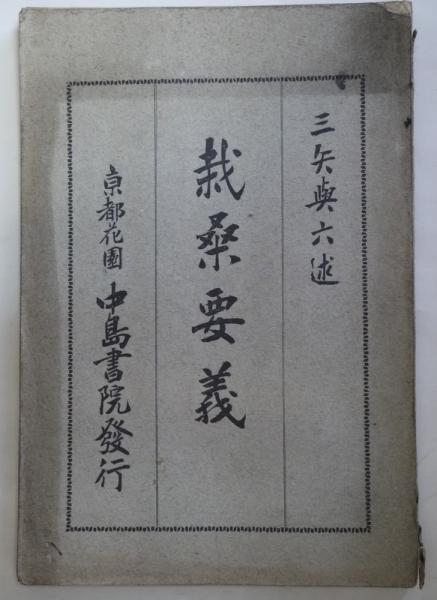 三矢與六述
栽桑要義
京都花園 中島書院發行